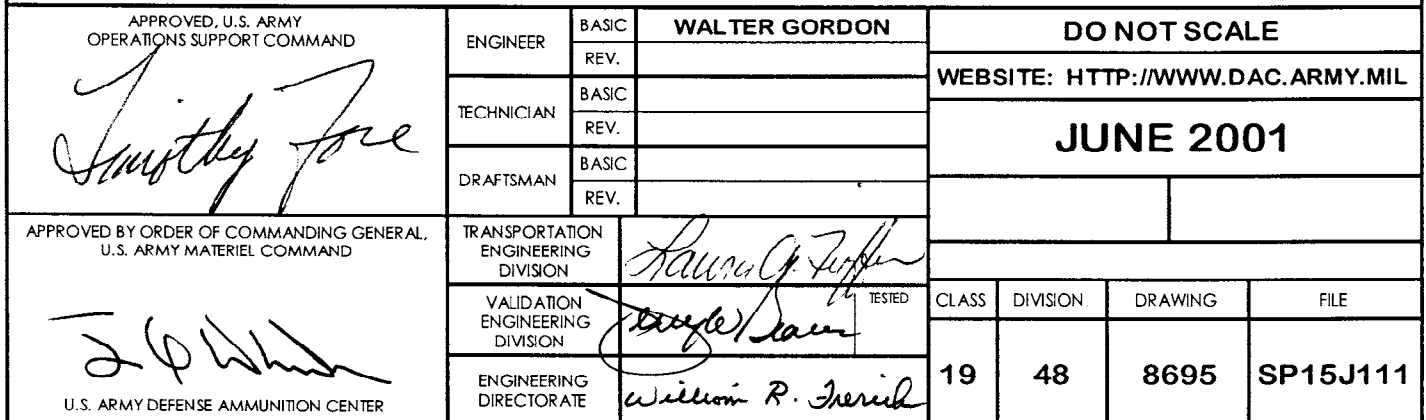 APPROVED, U.S. ARMY
OPERATIONS SUPPORT COMMAND
Timothy Fore
APPROVED BY ORDER OF COMMANDING GENERAL,
U.S. ARMY MATERIEL COMMAND
U.S. ARMY DEFENSE AMMUNITION CENTER
ENGINEER
BASIC
WALTER GORDON
REV.
TECHNICIAN
BASIC
REV.
DRAFTSMAN
BASIC
REV.
TRANSPORTATION
ENGINEERING
DIVISION
VALIDATION
ENGINEERING
DIVISION
TESTED
ENGINEERING
DIRECTORATE
William R. Frerich
DO NOT SCALE
WEBSITE: HTTP://WWW.DAC.ARMY.MIL
JUNE 2001
CLASS DIVISION DRAWING FILE
19 48 8695 SP15J111